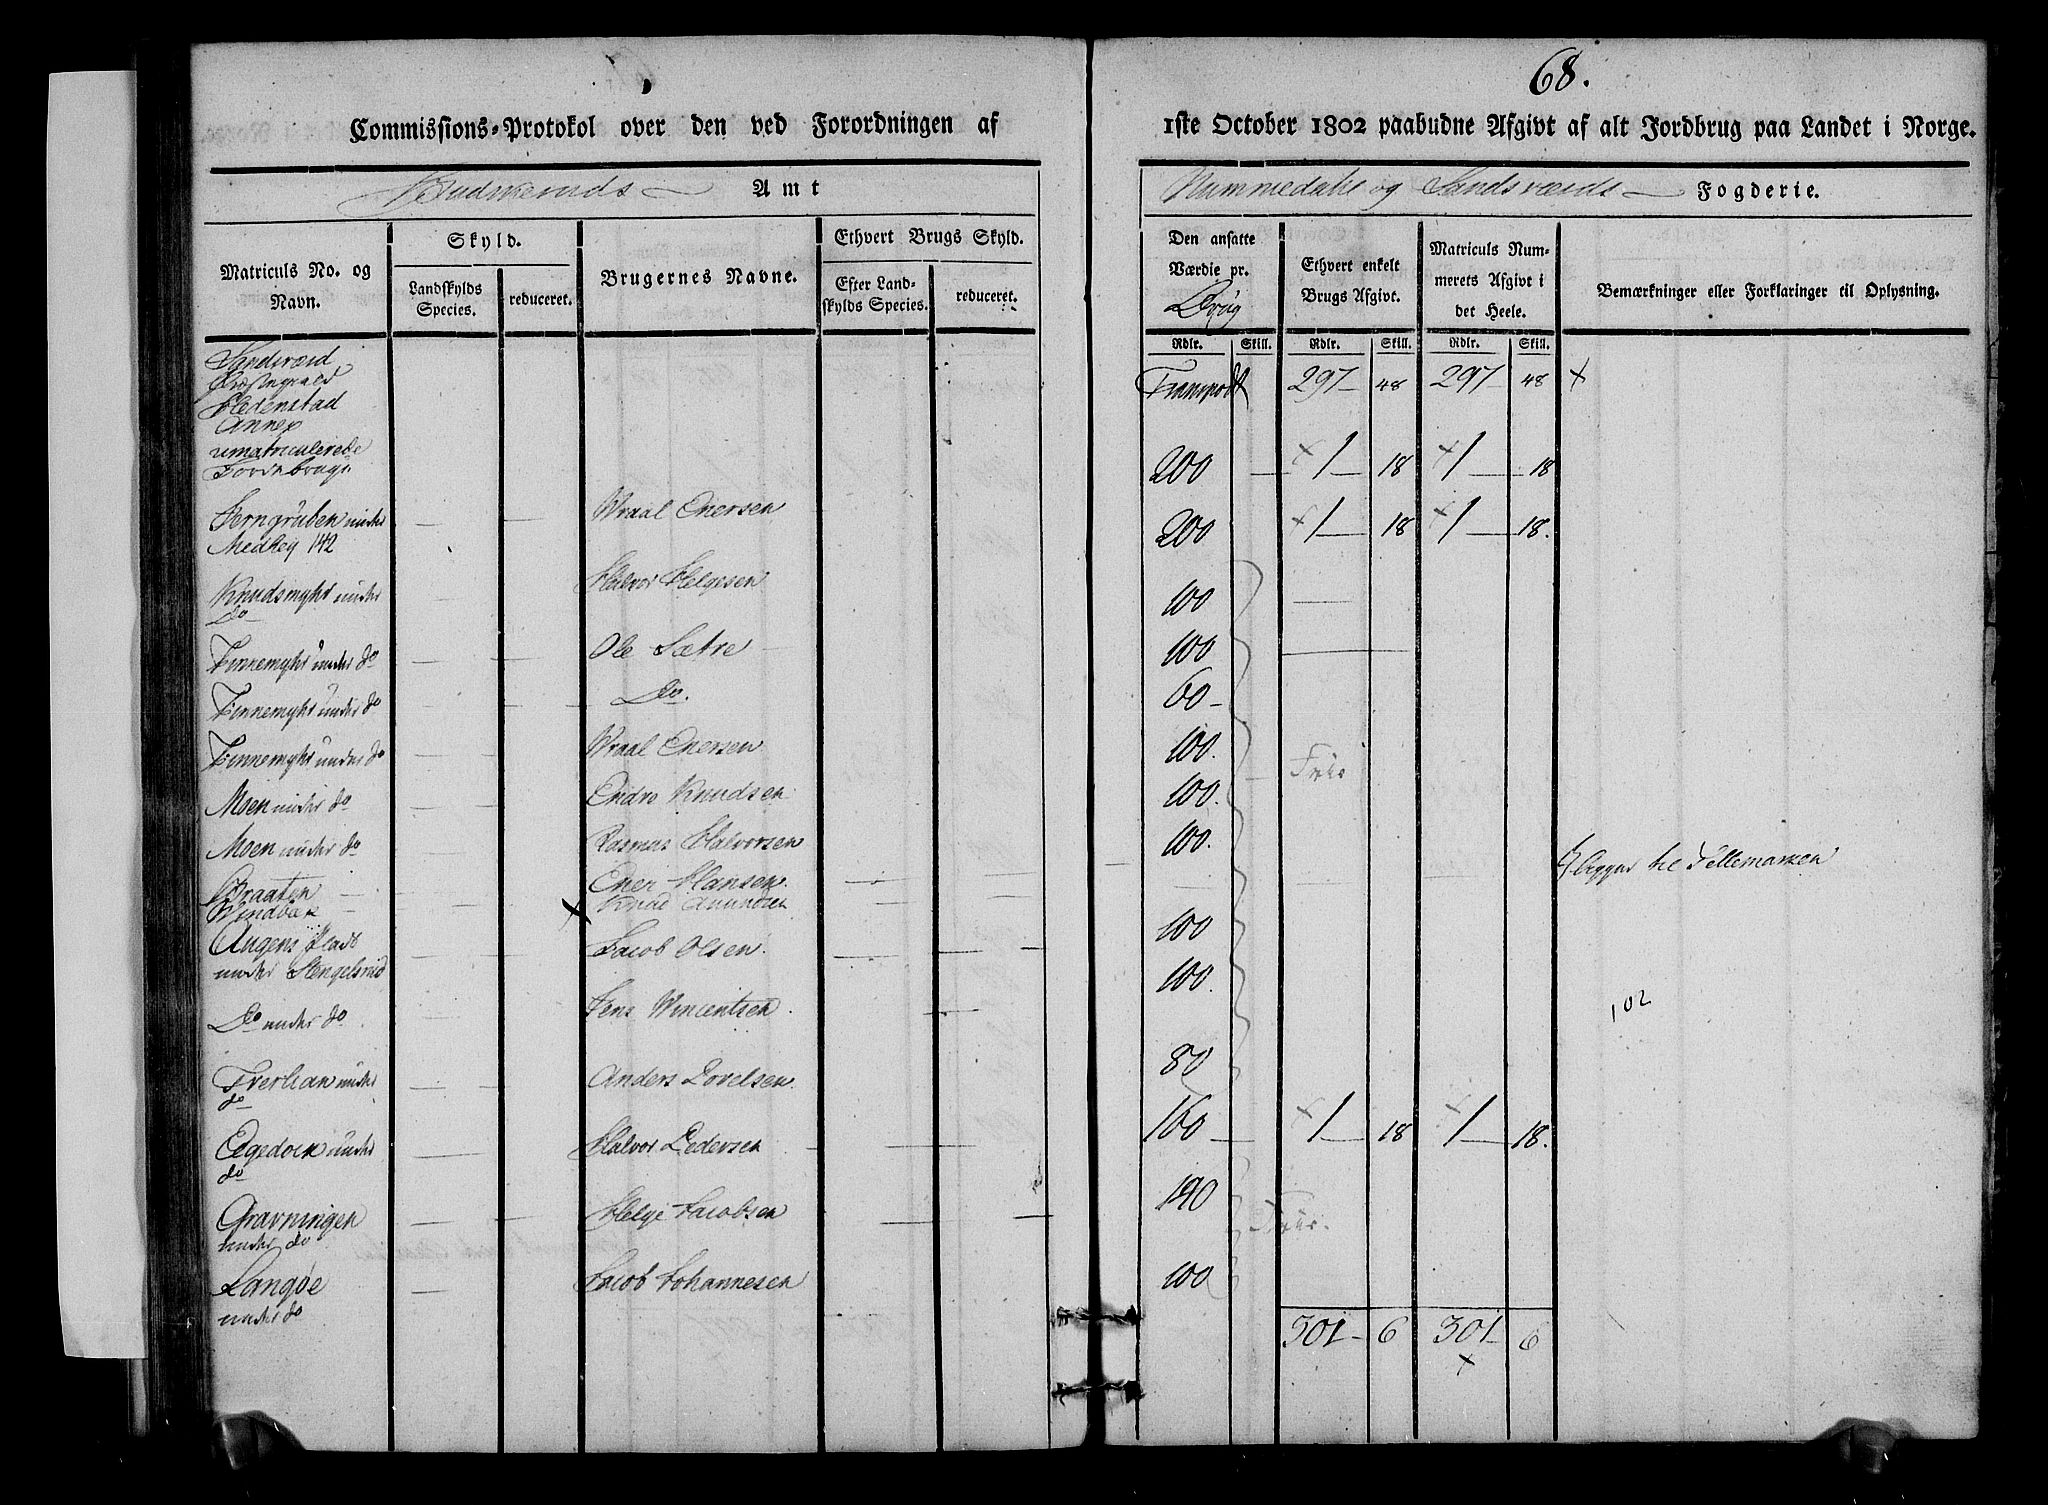 68.
Commissions-Protokol over den ved Forordningen af
1ste October 1802 paabudne Afgivt af alt Jordbrug paa Landet i Norge.
Budskeruds Amt
Nummedahls og Sandsværds Fogderie.
Matriculs No. og Navn.
Skyld.
Landskylds Species.
reduceret.
Brugernes Navne.
Ethvert Brugs Skyld.
Efter Landskylds Species.
reduceret.
Den ansatte Værdie pr. Brug
Ethvert enkelt Brugs Afgivt.
Matriculs Nummerets Afgivt i det Heele.
Bemærkninger eller Forklaringer til Oplysning.
Rdlr. Skill. Rdlr. Skill. Rdlr. Skill.
Sandsværd
Præstegiæld
Hedenstad
Annex
umatriculerede
Jordebruge
Transport 297 48 297 48 +
Jerngruben under
Medhey 142
Wraal Enersen
200 1 18 1 18
Knudsmyhr under
do
Halvor Helgesen
200 1 18 1 18.
Finnemyhr under do
Ole Sætre
100
Finnemyhr under do
Do.
100
Finnemyhr under do
Wraal Enersen
60
Moen under do
Endre Knudsen
100.
Friis
Moen under do
Rasmus Halvorsen
100.
Braaten
Ener Hansen.
100.
Windvæk
Knud Amundsen
ligger til Tellemarken
Augens Plads
under Stengelsrud
Jacob Olsen.
100
Do under do
Jens Wincentsen.
100.
102
Tverlian under
do
Anders Povelsen.
80
Egedoek under
do
Halvor Pedersen
160 1 18 1 18.
Gravningen
under do
Helge Jacobsen
140
Friis.
Langøe
under do
Jacob Johannesen
100
301 6 301 6
+